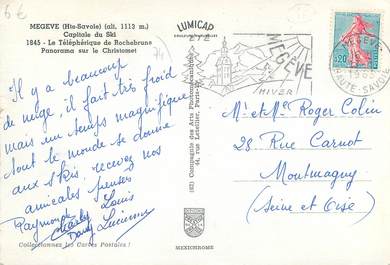 6€
MEGEVE (Hte-Savoie) (alt. 1113 m.)
Capitale du Ski
1845 - Le Téléphérique de Rochebrune
Panorama sur le Christomet
Il y a beaucoup
de neige, il fait très froid
mais un temps magnifique
tout le monde se donne
aux skis, recevez nos
amicales pensées
Raymonde Louis
Charles
Dany Lucienne
Collectionnez les Cartes Postales !
LUMICAP
74
(62) Compagnie des Arts Photomécaniques
44, rue Letellier, Paris-15e
MEXICHROME
ETE
MEGEVE
HIVER
MEGEVE
HAUTE-SAVOIE
0,20
Mr et Mme Roger Colin
28 Rue Carnot
Montmagny
(Seine et Oise)